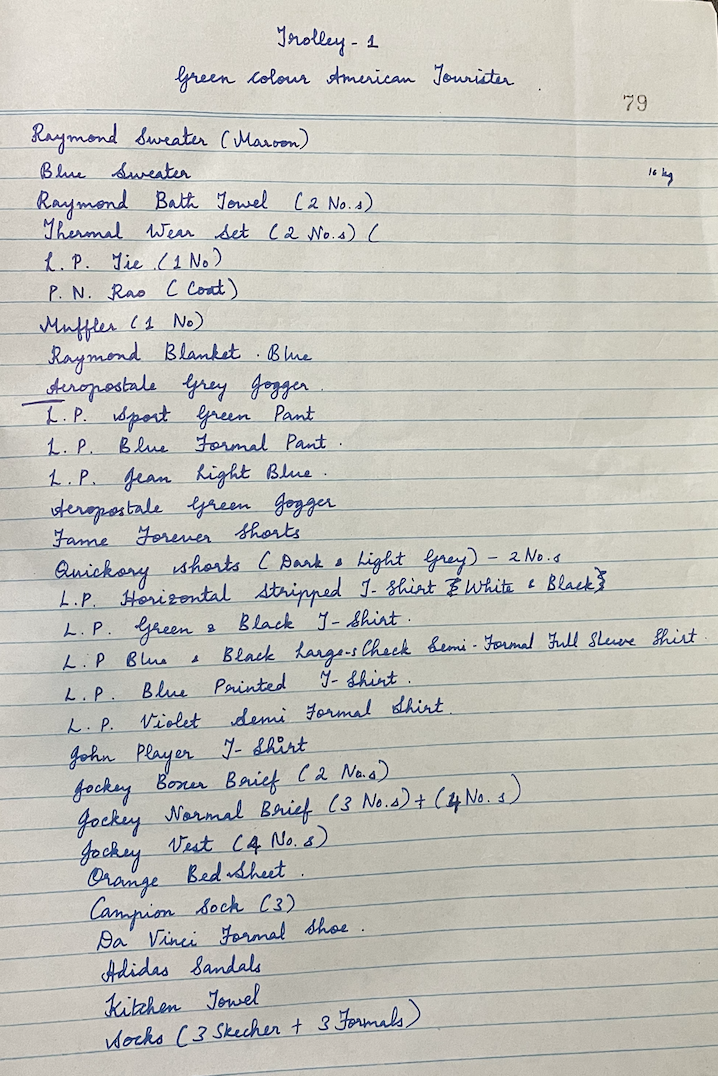 Trolley - 1
Green colour American Tourister
79
Raymond Sweater (Maroon)
Blue Sweater
16 kg
Raymond Bath Towel (2 No.s)
Thermal Wear Set (2 No.s) (
L.P. Tie (1 No)
P. N. Rao (Coat)
Muffler (1 No)
Raymond Blanket . Blue
Aeropostale Grey Jogger.
L.P. Sport Green Pant
L.P. Blue Formal Pant.
L.P. Jean Light Blue.
Aeropostale Green Jogger
Fame Forever Shorts
Quickory shorts (Dark & Light Grey) - 2 No.s
L.P. Horizontal Stripped T-Shirt {White & Black}
L.P. Green & Black T-Shirt.
L.P Blue & Black Large-s Check Semi-Formal Full Sleeve Shirt.
L.P. Blue Printed T-Shirt.
L.P. Violet Semi Formal Shirt.
John Player T-Shirt
Jockey Boxer Brief (2 No.s)
Jockey Normal Brief (3 No.s) + (4 No.s)
Jockey Vest (4 No.s)
Orange Bed Sheet.
Campion Sock (3)
Da Vinci Formal Shoe.
Adidas Sandals
Kitchen Towel
Socks (3 Skecher + 3 Formals)